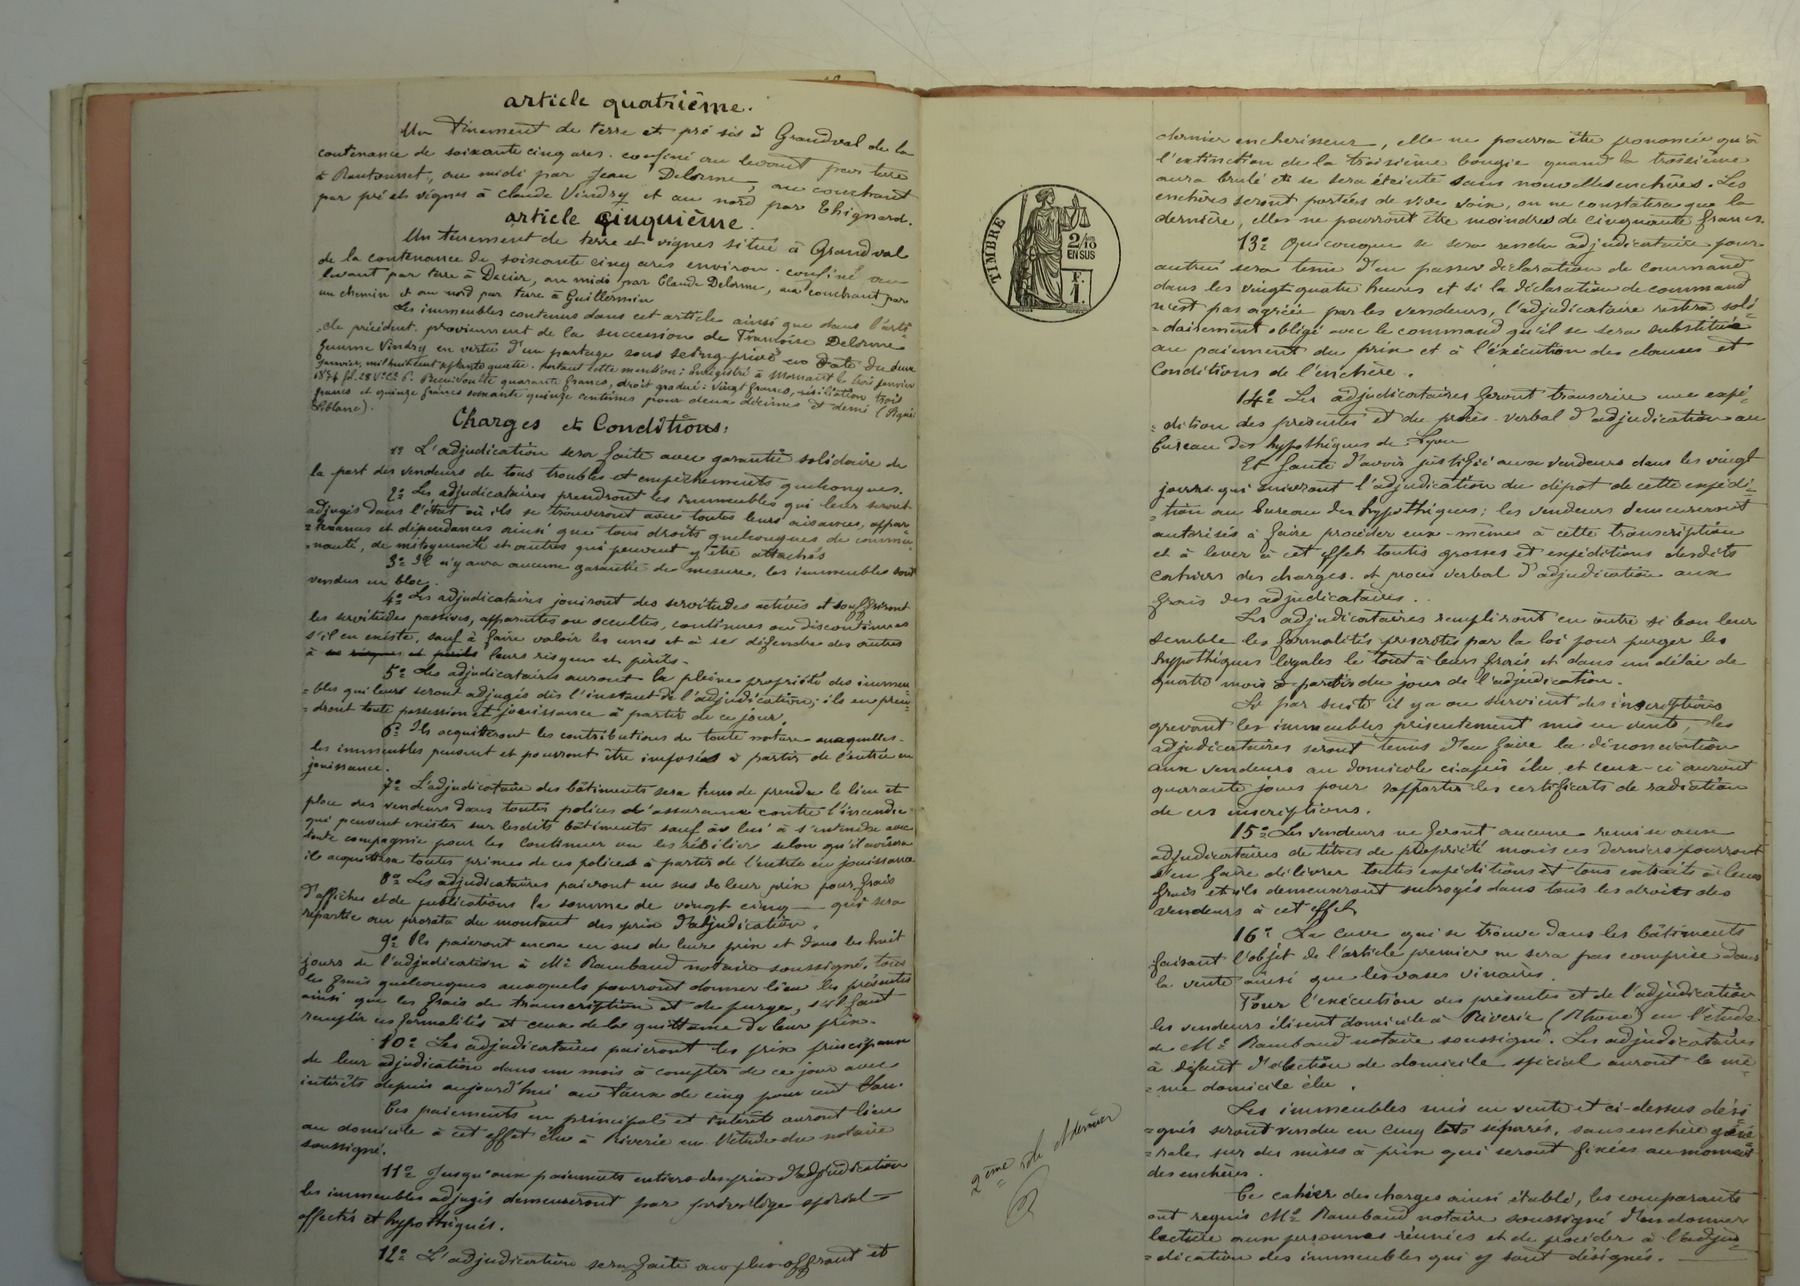 article quatrième.
Un tinement de terre et pré sis à Grandval de la
contenance de soixante cinq ares. confiné au levant par terre
à Rantonnet, au midi par Jean Delorme, au couchant
par pré et vignes à Claude Vindry et au nord par Thignard.
article cinquième.
Un tinement de terre et vignes situé à Grandval
de la contenance de soixante cinq ares environ. confiné au
levant par terre à Decior, au midi par Claude Delorme, au couchant par
un chemin et au nord par terre à Guillermin
Les immeubles contenus dans cet article ainsi que dans l'arti
=cle précédent. proviennent de la succession de Françoise Delorme
femme Vindry en vertu d'un partage sous seing privé en date du deux
janvier, mil huit cent septante quatre. Portant cette mention: Enregistré à Mornant le trois janvier
1874 fol. 28 Vo Co 6. Reçu Soulte quarante francs, droit gradué: vingt francs, résiliation trois
francs et quinze francs soixante quinze centimes pour deux décimes et demi (Signé
Leblanc).
Charges et Conditions:
1o L'adjudication sera faite avec garantie solidaire de
la part des vendeurs de tous troubles et empêchements quelconques.
2o Les adjudicataires prendront les immeubles qui leur seront
adjugés dans l'état où ils se trouveront avec toutes leurs aisances, appar
=tenances et dépendances ainsi que tous droits quelconques de commu=
=nauté, de mitoyenneté et autres qui peuvent y être attachés
3o Il n'y aura aucune garantie de mesure, les immeubles sont
vendus en bloc.
4o Les adjudicataires jouiront des servitudes actives et souffriront
les servitudes passives, apparentes ou occultes, continues ou discontinues
s'il en existe, sauf à faire valoir les unes et à se défendre des autres
à ses risques et périls leurs risques et périls.
5o Les adjudicataires auront la pleine propriété des immeu=
=bles qui leurs seront adjugés dès l'instant de l'adjudication; ils en pren=
=dront toute possession et jouissance à partir de ce jour.
6o Ils acquitteront les contributions de toute nature auxquelles
les immeubles peuvent et pourront être imposés à partir de l'entrée en
jouissance.
7o L'adjudicataire des bâtiments sera tenu de prendre le lieu et
place des vendeurs dans toutes polices d'assurance contre l'incendie
qui peuvent exister sur lesdits bâtiments sauf à lui à s'entendre avec
toute compagnie pour les continuer ou les résilier selon qu'il avisera
il acquittera toutes primes de ces polices à partir de l'entrée en jouissance
8o Les adjudicataires paieront en sus de leur prix pour frais
d'affiches et de publications la somme de vingt cinq — qui sera
répartie au prorata du montant des prix d'adjudication.
9o Ils paieront encore en sus de leur prix et dans les huit
jours de l'adjudication à Me Rambaud notaire soussigné. tous
les frais quelconques auxquels pourront donner lieu les présentes
ainsi que les frais de transcription et de purge, s'il faut
remplir ces formalités et ceux de la quittance de leur prix.
10o Les adjudicataires paieront les prix principaux
de leur adjudication dans un mois à compter de ce jour avec
intérêts depuis aujourd'hui au taux de cinq pour cent l'an.
Ces paiements en principal et intérêts auront lieu
au domicile à cet effet élu à Riverie en l'étude du notaire
soussigné.
11o Jusqu'aux paiements entiers des prix d'adjudication
les immeubles adjugés demeureront par privilège spécial
affectés et hypothéqués.
12o L'adjudication sera faite au plus offrant et
TIMBRE
2/10
EN SUS
F.
1.
2ème rôle et dernier
dernier enchérisseur, elle ne pourra être prononcée qu'à
l'extinction de la troisième bougie quand la troisième
aura brulé et se sera éteinte sans nouvelles enchères. Les
enchères seront portées de vive voix, on ne constatera que la
dernière, elles ne pourront être moindres de cinquante francs.
13o Quiconque se sera rendu adjudicataire pour
autrui sera tenu d'en passer déclaration de command
dans les vingt quatre heures et si la déclaration de command
n'est pas agréée par les vendeurs, l'adjudicataire restera soli=
=dairement obligé avec le command qu'il se sera substitué
au paiement du prix et à l'exécution des clauses et
conditions de l'enchère.
14o Les adjudicataires feront transcrire une expé=
=dition des présentes et du procès-verbal d'adjudication au
bureau des hypothèques de Lyon
Et faute d'avoir justifié aux vendeurs dans les vingt
jours qui suivront l'adjudication du dépot de cette expédi=
=tion au bureau des hypothèques; les vendeurs demeureront
autorisés à faire procéder eux-mêmes à cette transcription
et à lever à cet effet toutes grosses et expéditions desdits
cahiers des charges. et procès verbal d'adjudication aux
frais des adjudicataires.
Les adjudicataires rempliront en outre si bon leur
semble les formalités prescrites par la loi pour purger les
hypothèques légales le tout à leurs frais et dans un délai de
quatre mois à partir du jour de l'adjudication.
Si par suite il y a ou survient des inscriptions
grevant les immeubles présentement mis en vente, les
adjudicataires seront tenus d'en faire la dénonciation
aux vendeurs au domicile ci-après élu et ceux-ci auront
quarante jours pour rapporter les certificats de radiation
de ces inscriptions.
15o Les vendeurs ne feront aucune remise aux
adjudicataires de titres de propriété mais ces derniers pourront
s'en faire délivrer toutes expéditions et tous extraits à leurs
frais et ils demeureront subrogés dans tous les droits des
vendeurs à cet effet
16o La cuve qui se trouve dans les bâtiments
faisant l'objet de l'article premier ne sera pas comprise dans
la vente ainsi que les vases vinaires.
Pour l'exécution des présentes et de l'adjudication
les vendeurs élisent domicile à Riverie (Rhône) en l'étude
de Me Rambaud notaire soussigné. Les adjudicataires
à défaut d'élection de domicile spécial auront le mê=
=me domicile élu.
Les immeubles mis en vente et ci-dessus dési
=gnés seront vendus en cinq lots séparés, sans enchère géné=
=rale, sur des mises à prix qui seront fixées au moment
des enchères.
Ce cahier des charges ainsi établi, les comparants
ont requis Me Rambaud notaire soussigné d'en donner
lecture aux personnes réunies et de procéder à l'adju=
=dication des immeubles qui y sont désignés.